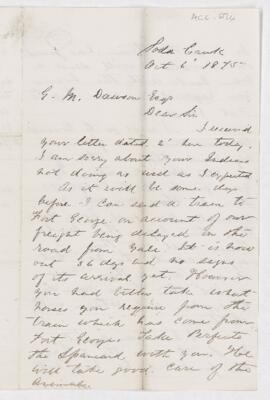 Soda Creek
Oct 6' 1875
G. M. Dawson Esqr
Dear Sir
I received
your letter dated 2' here today.
I am sorry about your Indians
not doing as well as I expected
As it will be some days
before I can send a train to
Fort George on account of our
freight being delayed in the
road from Yale. It is now
out 36 days and no signs
of its arrival yet. However
you had better take what
horses you require from the
train which has come from
Fort George. Take
the Spaniard with you. He
will take good care of the